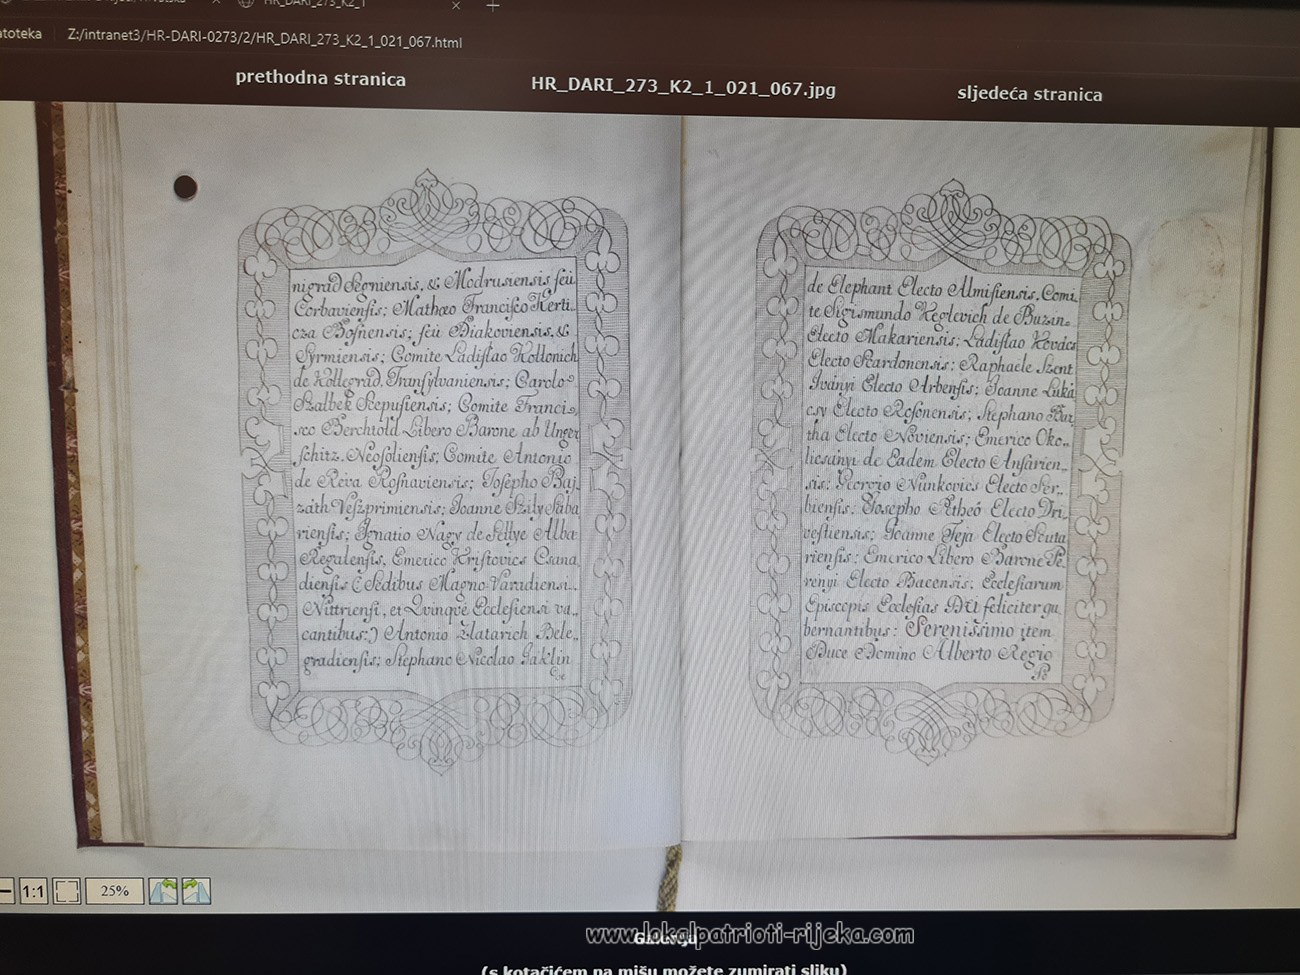 HR_DARI_273_K2_1
atoteka
Z:/intranet3/HR-DARI-0273/2/HR_DARI_273_K2_1_021_067.html
prethodna stranica
HR_DARI_273_K2_1_021_067.jpg
sljedeća stranica
nigrad Segniensis, & Modrusiensis seu
Corbaviensis; Mathœo Francisco Kerti-
cza Bosnensis; seu Diakoviensis, &
Syrmiensis; Comite Ladislao Kollonich
de Kollegrád, Transylvaniensis; Carolo
Szalbek Scepusiensis; Comite Franci-
sco Berchtold Libero Barone ab Unger
schitz, Neosoliensis; Comite Antonio
de Réva Rosnaviensis; Josepho Baj-
záth Veszprimiensis; Joanne Szily Saba
riensis; Ignatio Nagy de Séllye Alba
Regalensis, Emerico Kristovics Csana
diensis (: Sedibus Magno-Varadiensi,
Nittriensi, et Quinque Ecclesiensi va-
cantibus:) Antonio Zlatarich Bele-
gradiensis; Stephano Nicolao Jaklin
de
de Elephant Electo Almisiensis, Comi
te Sigismundo Keglevich de Buzin-
Electo Makariensis; Ladislao Kovács
Electo Scardonensis; Raphaele Szent
Iványi Electo Arbensis; Joanne Luká
csy Electo Rosonensis; Stephano Bar
tha Electo Noviensis; Emerico Oko-
licsányi de Eadem Electo Ansarien-
sis; Georgio Nunkovics Electo Ser-
biensis; Josepho Electo Dri
vestiensis; Joanne Teja Electo Scuta
riensis; Emerico Libero Barone Pe-
renyi Electo Bacensis, Ecclesiarum
Episcopis Ecclesias DEI feliciter gu
bernantibus: Serenissimo item
Duce Domino Alberto Regio
1:1
25%
www.lokalpatrioti-rijeka.com
(s kotačićem na mišu možete zumirati sliku)